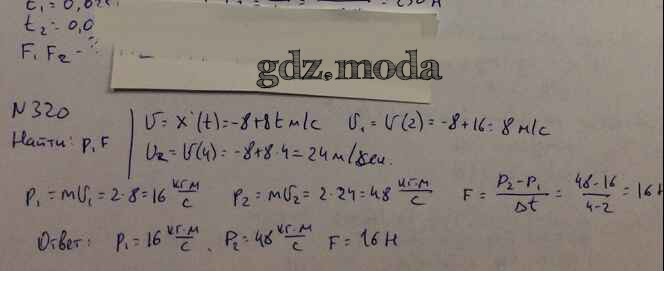 t₁ = 0,02
t₂ = 0,0
F₁ F₂ -
gdz.moda
N320
Найти: p, F
υ = x'(t) = -8+8t м/с υ₁ = υ(2) = -8+16 = 8 м/с
υ₂ = υ(4) = -8+8·4 = 24 м/сек.
p₁ = mυ₁ = 2·8 = 16 кг·м/с p₂ = mυ₂ = 2·24 = 48 кг·м/с F = p₂-p₁/Δt = 48-16/4-2 = 16 Н
Ответ: p₁ = 16 кг·м/с, p₂ = 48 кг·м/с F = 16 Н